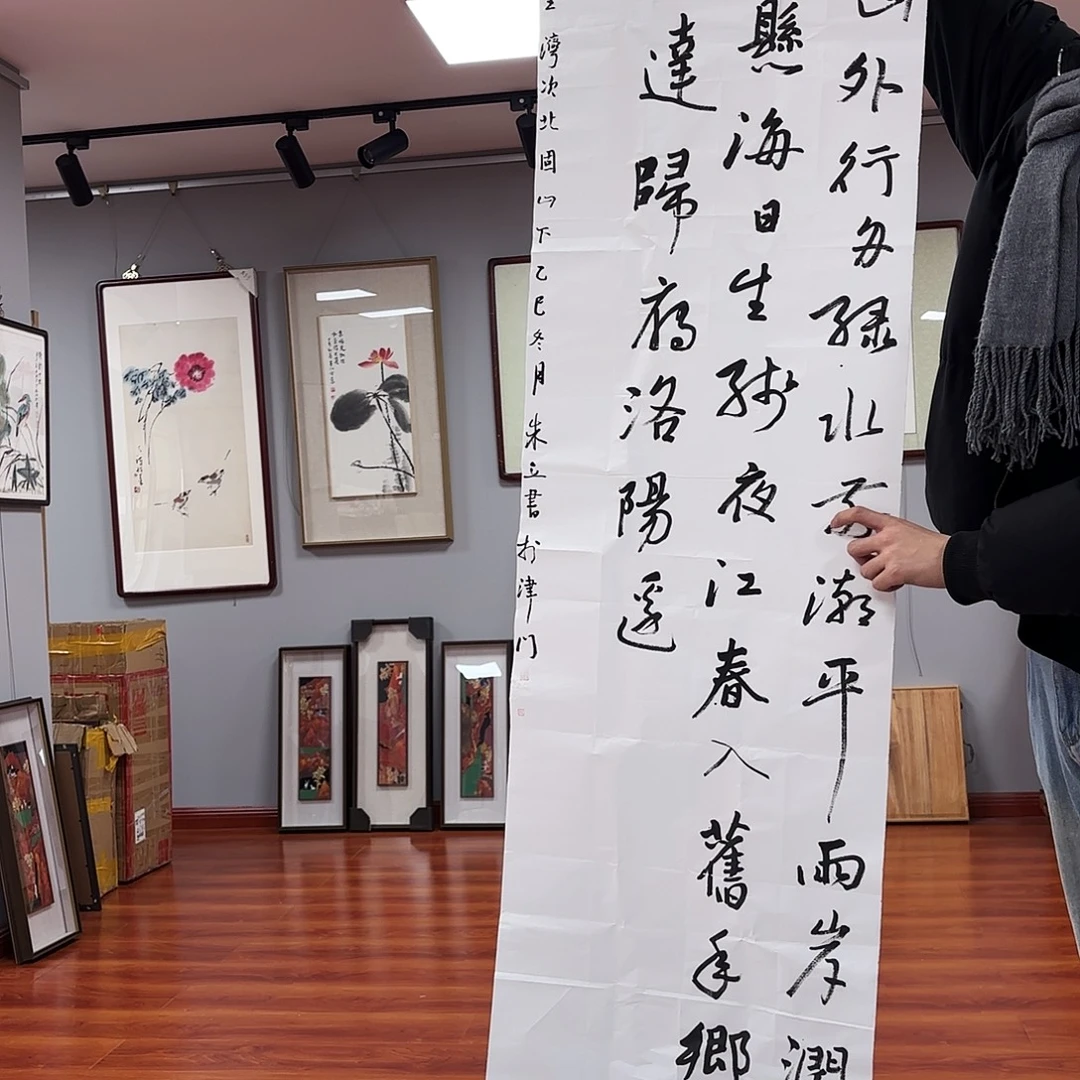 山外行舟綠水前潮平兩岸濶
懸海日生殘夜江春入舊年鄉
達歸雁洛陽邊
王灣次北固山下乙巳冬月朱立書於津門